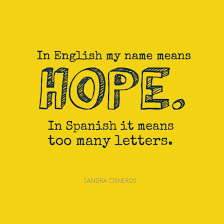 In English my name means
HOPE.
In Spanish it means
too many letters.
SANDRA CISNEROS